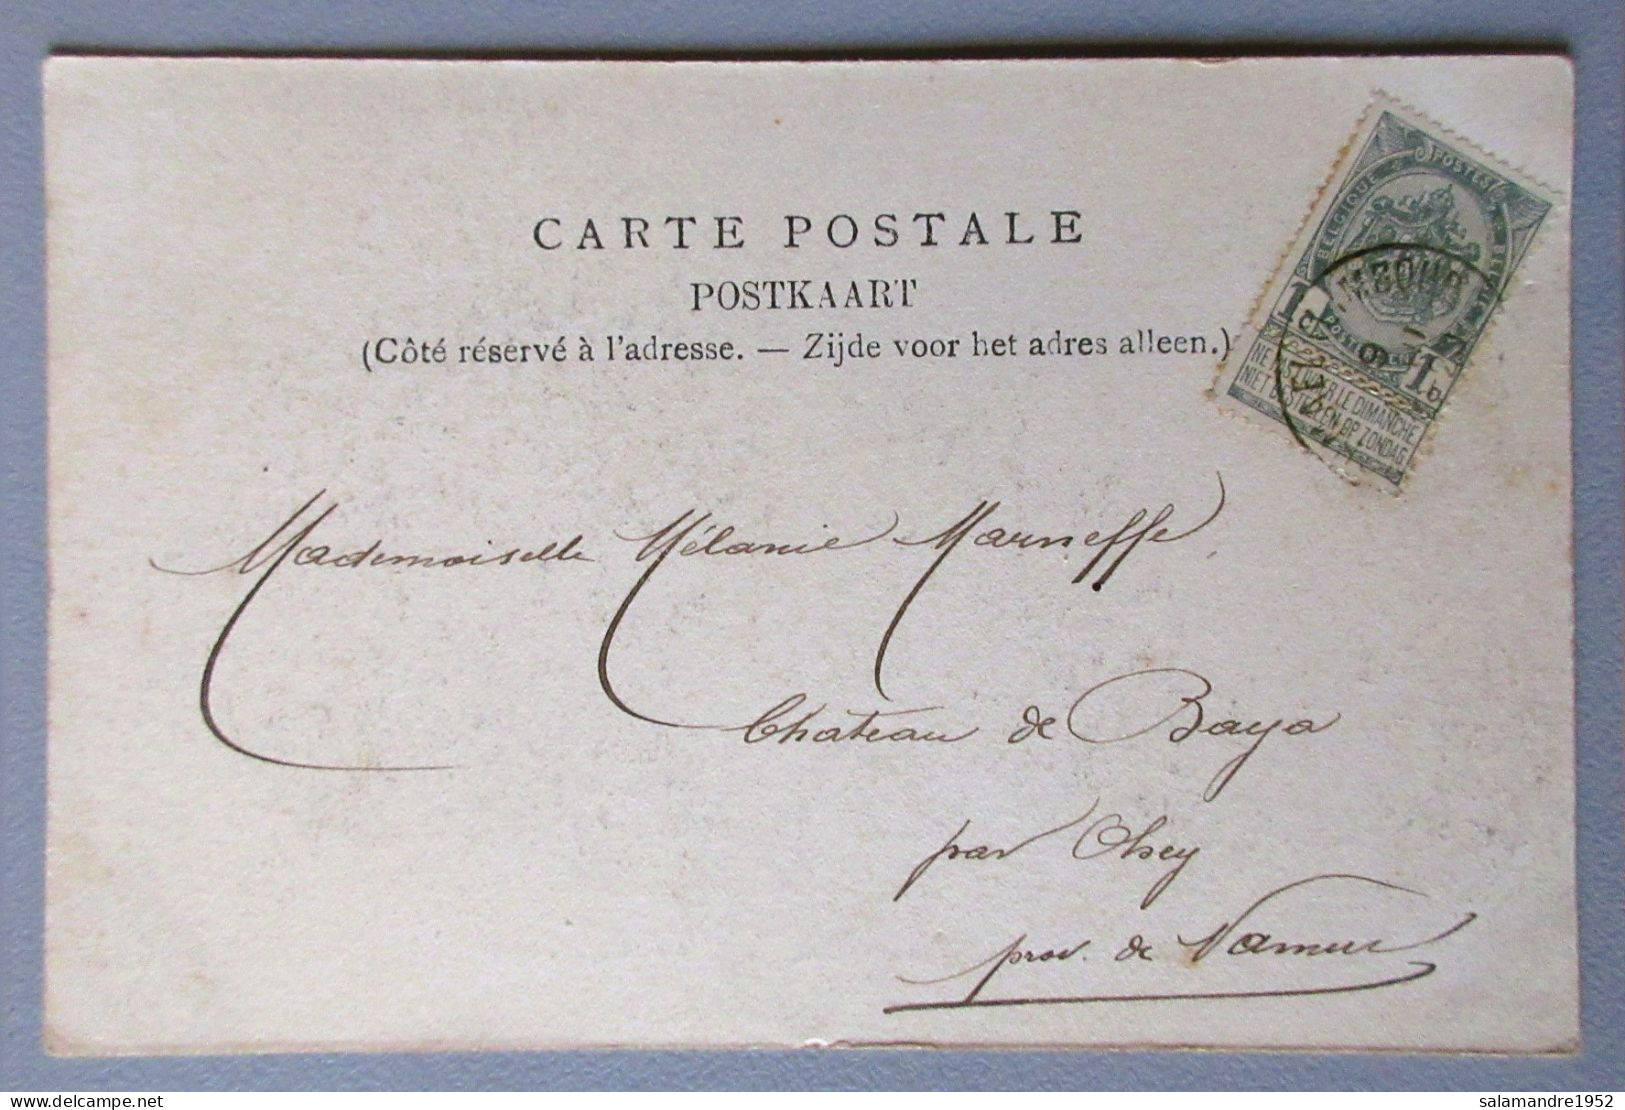 CARTE POSTALE
POSTKAART
(Côté réservé à l'adresse. — Zijde voor het adres alleen.)
BELGIQUE POSTES BELGIE
1c POSTERIJEN 1c
NE PAS LIVRER LE DIMANCHE
NIET BESTELLEN OP ZONDAG
Mademoiselle Mélanie Marneffe
Chateau de Baya
par Ohey
prov. de Namur
delcampe.net
salamandre1952